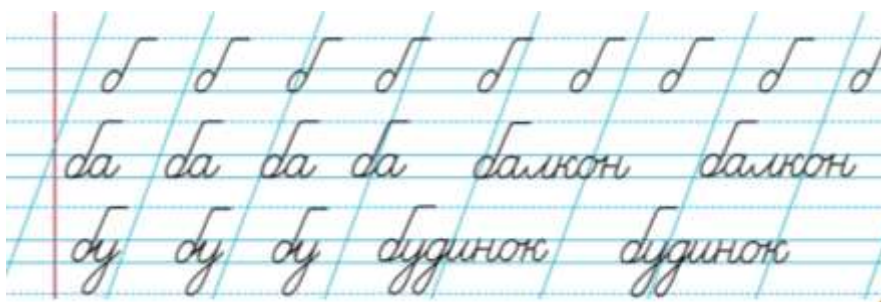 б б б б б б б б б
ба ба ба ба балкон балкон
бу бу бу будинок будинок